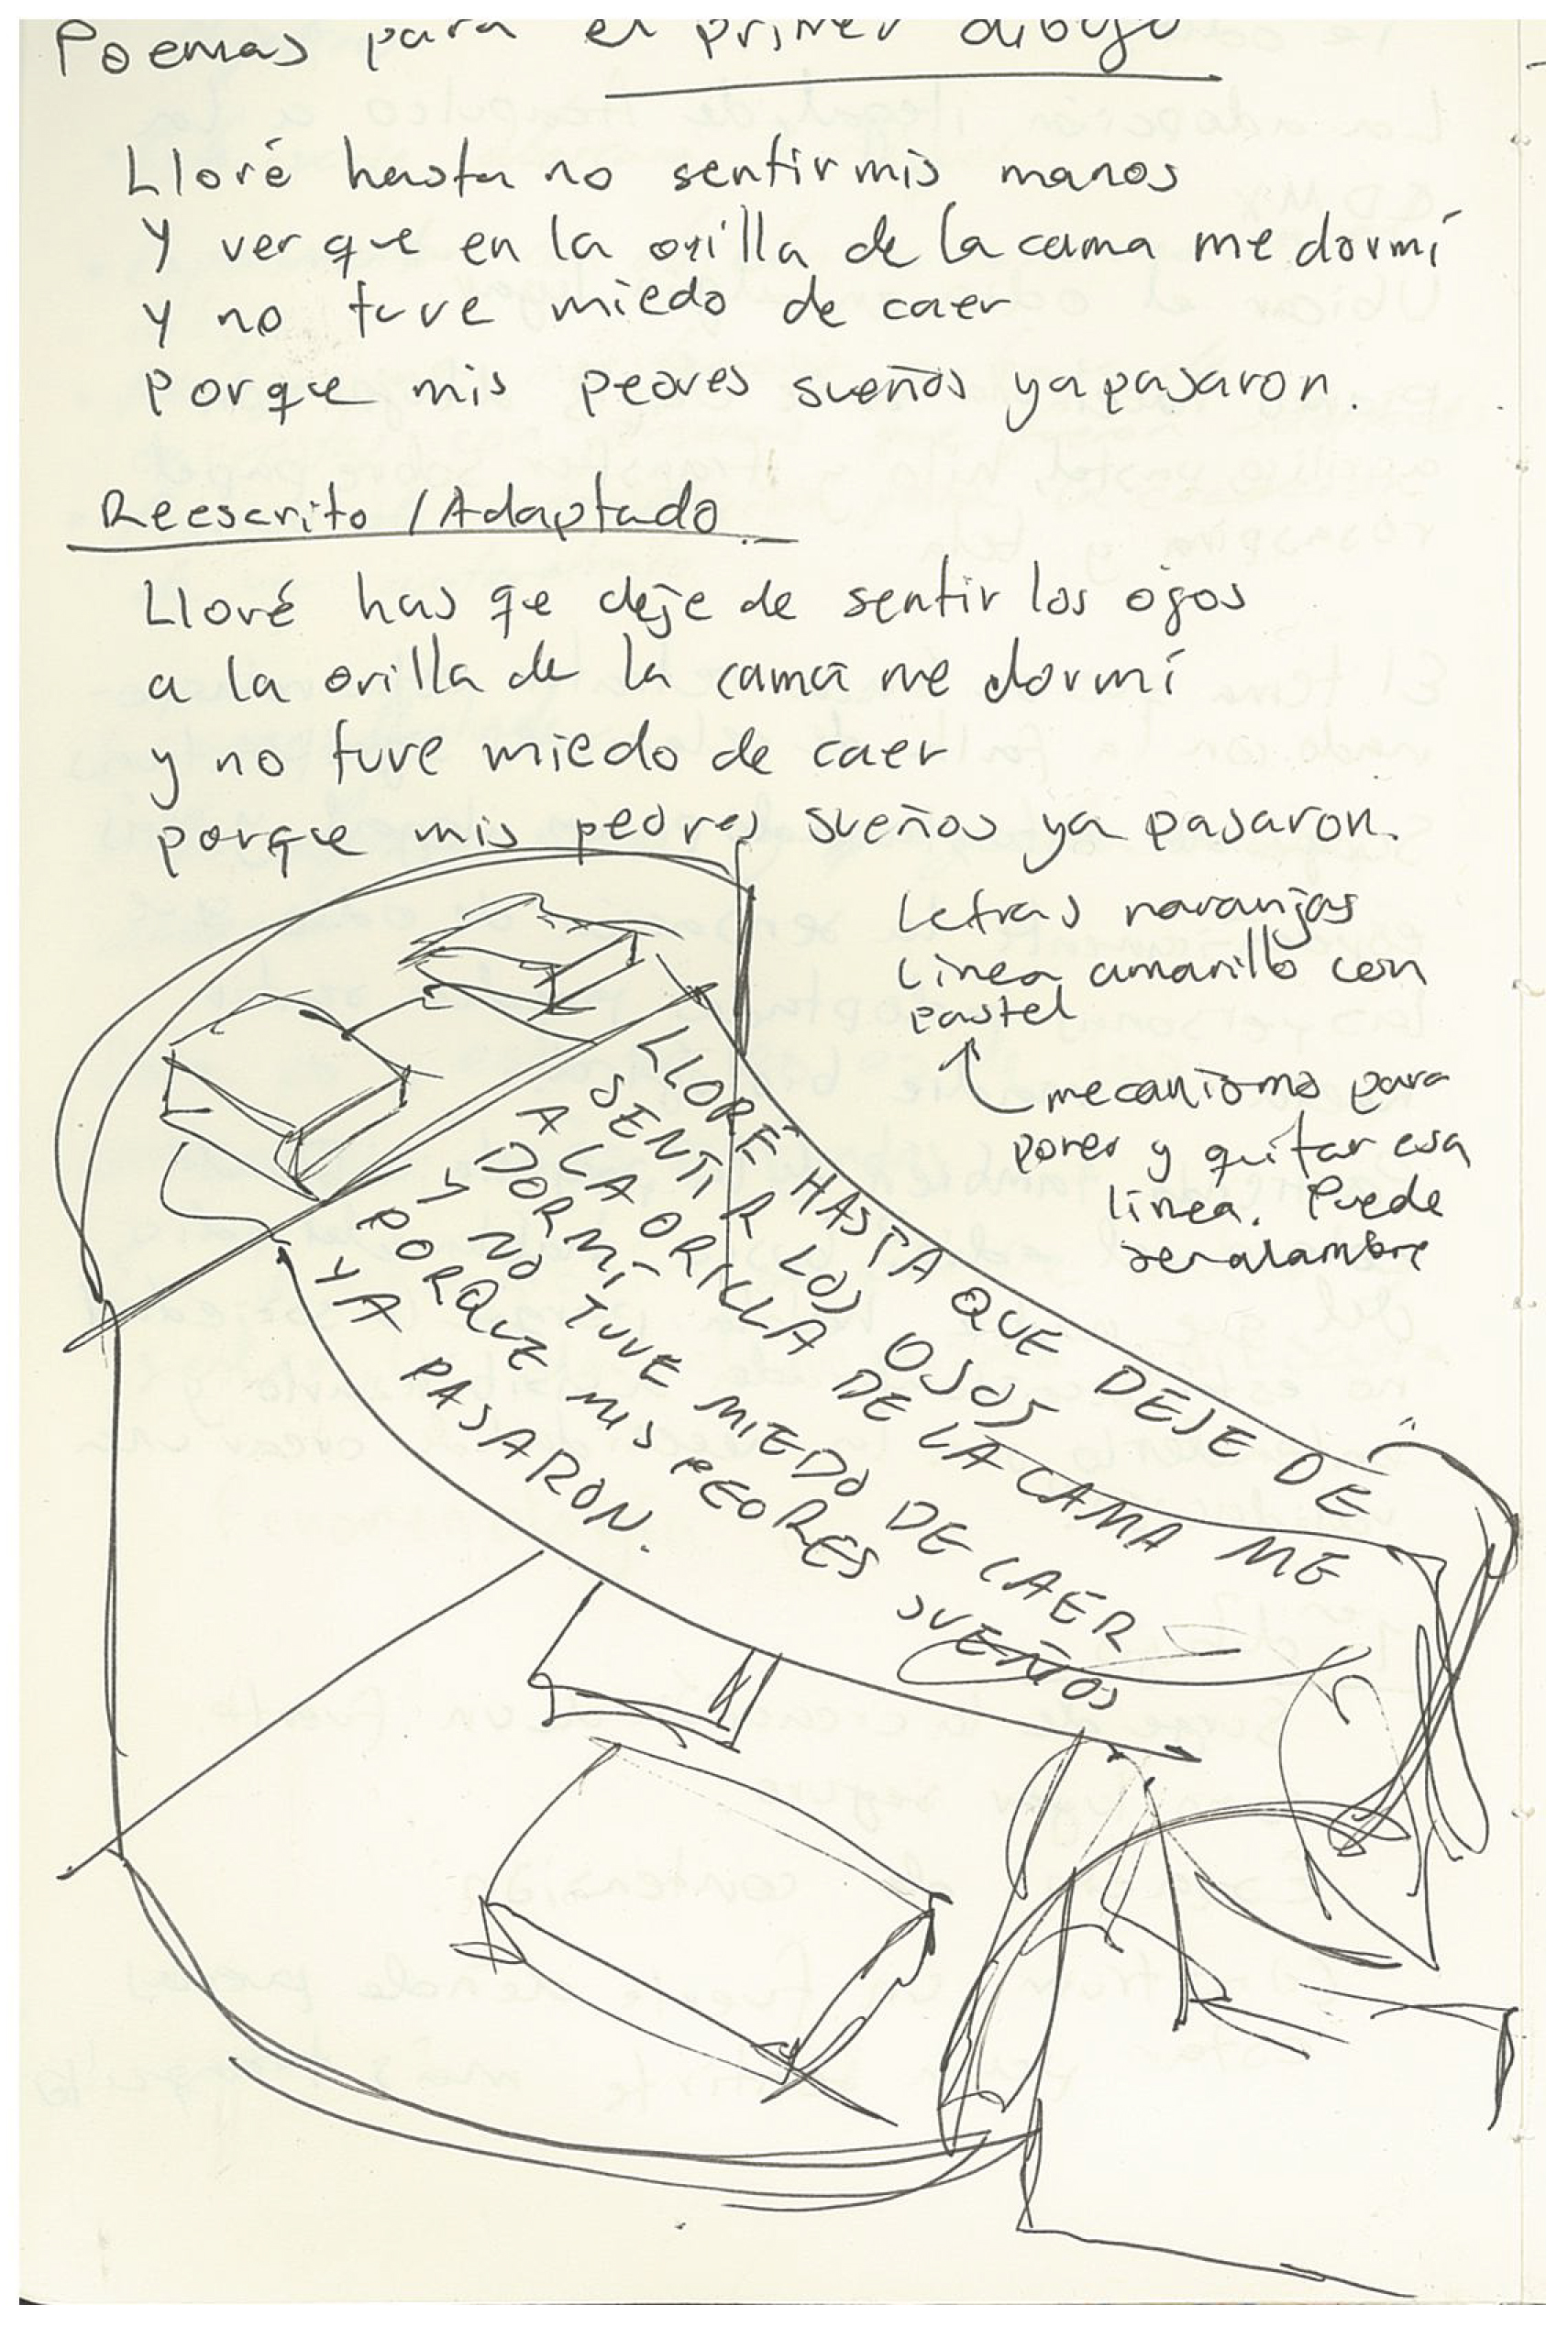 Poemas para el primer dibujo
Lloré hasta no sentir mis manos
Y ver que en la orilla de la cama me dormí
y no tuve miedo de caer
Porque mis peores sueños ya pasaron.
Reescrito / Adaptado
Lloré has qe deje de sentir los ojos
a la orilla de la cama me dormí
y no tuve miedo de caer
porque mis peores sueños ya pasaron.
Letras naranjas
Linea amarillo con
pastel
mecanismo para
poner y quitar esa
linea. Puede
ser alambre
LLORÉ HASTA QUE DEJE DE
SENTIR LOS OJOS
A LA ORILLA DE LA CAMA ME
DORMÍ
Y NO TUVE MIEDO DE CAER
PORQUE MIS PEORES SUEÑOS
YA PASARON.